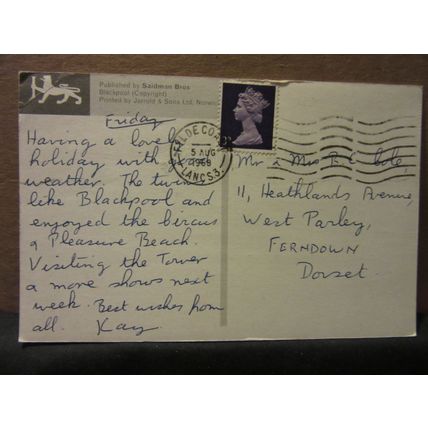 Published by Saidman Bros
Blackpool (Copyright)
Printed by Jarrold & Sons Ltd, Norwich
Friday
Having a lovely
holiday with
weather. The twins
like Blackpool and
enjoyed the circus
& Pleasure Beach.
Visiting the Tower
& more shows next
week. Best wishes from
all. Kay
FYLDE COAST
5 AUG
1968
LANCS 3
Mr & Mrs
11, Heathlands Avenue,
West Parley,
FERNDOWN
Dorset.